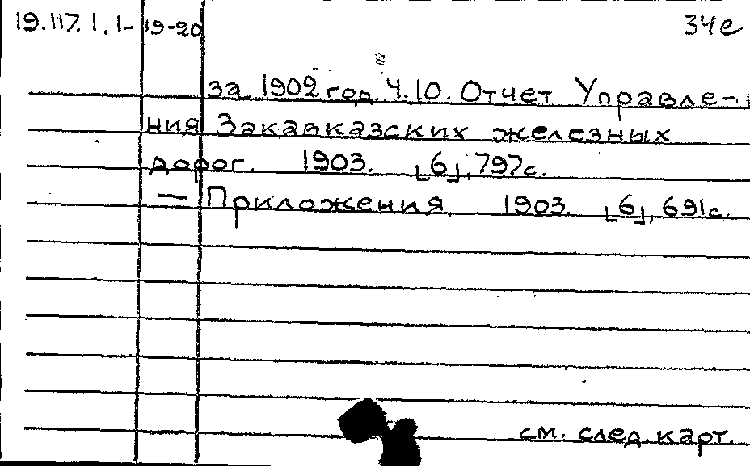 19.117.1.1- 19-20 34е
за 1902 год Ч.10. Отчет Управле-
ния Закавказских железных
дорог. 1903. [6], 797с.
— Приложения. 1903. [6], 691с.
см. след. карт.